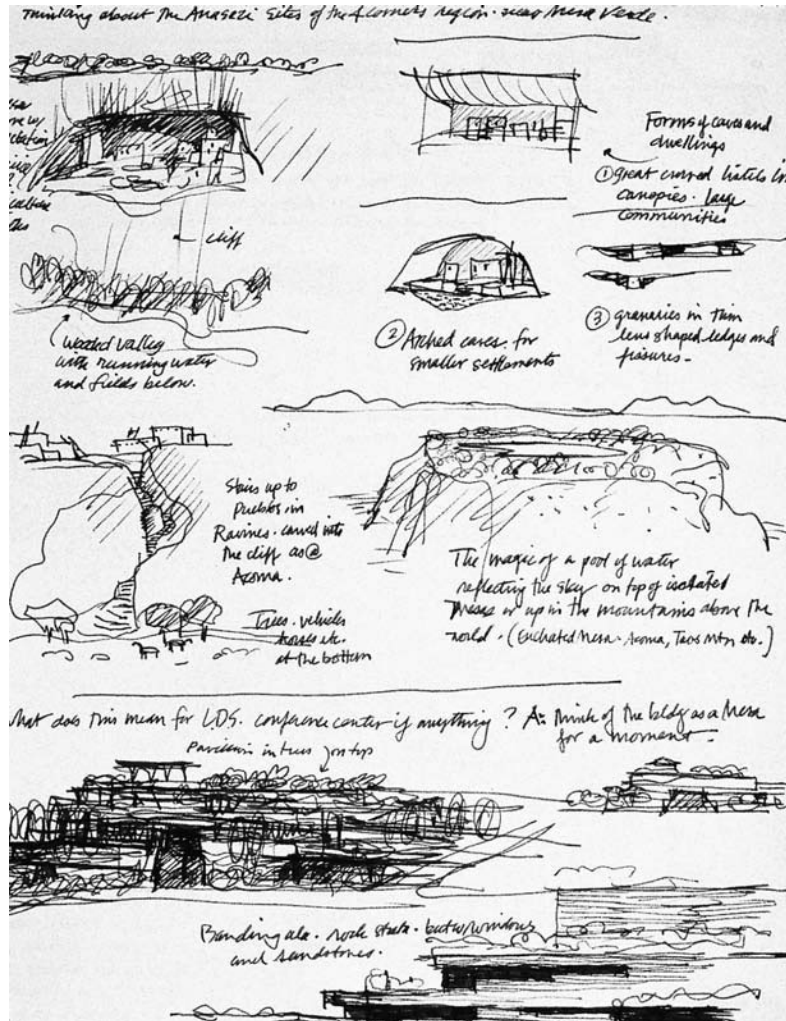 Thinking about the Anasazi Sites of the 4 corners region. near Mesa Verde.
cliff
Wooded Valley
with running water
and fields below.
Forms of caves and
dwellings
① great curved lintels
canopies. large
communities
② Arched caves. for
smaller settlements
③ granaries in thin
lens shaped ledges and
fissures-
Stairs up to
Pueblos in
Ravines. carved into
the cliff as @
Acoma.
Trees. vehicles
horses etc.
at the bottom
The magic of a pool of water
reflecting the sky on top of isolated
Mesas or up in the mountains above the
world. (Enchanted Mesa. Acoma, Taos Mtn etc.)
what does this mean for L.D.S. conference center if anything? A: think of the bldg as a Mesa
for a moment-
Pavilion in trees on top
Banding ala. rock strata. but w/ windows
and sandstones.